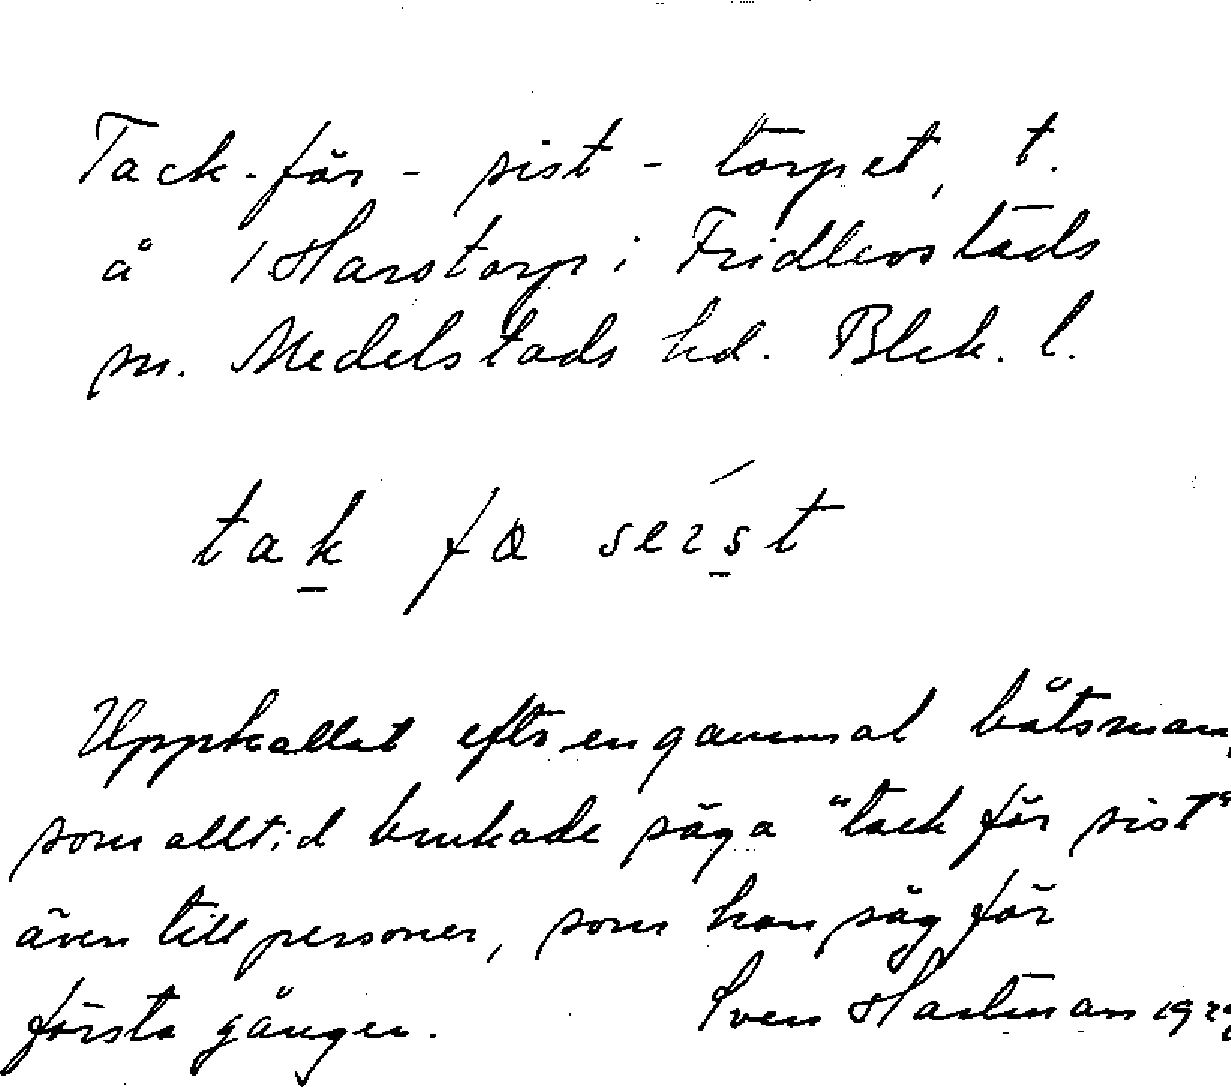 Tack-för-sist-torpet, t.
å /Harstorp i Fridlevstads
sn. Medelstads hd. Blek. l.
tak fœ seɪst
Uppkallat efter en gammal båtsman,
som alltid brukade säga "tack för sist"
även till personer, som han såg för
första gången. Sven Hartman